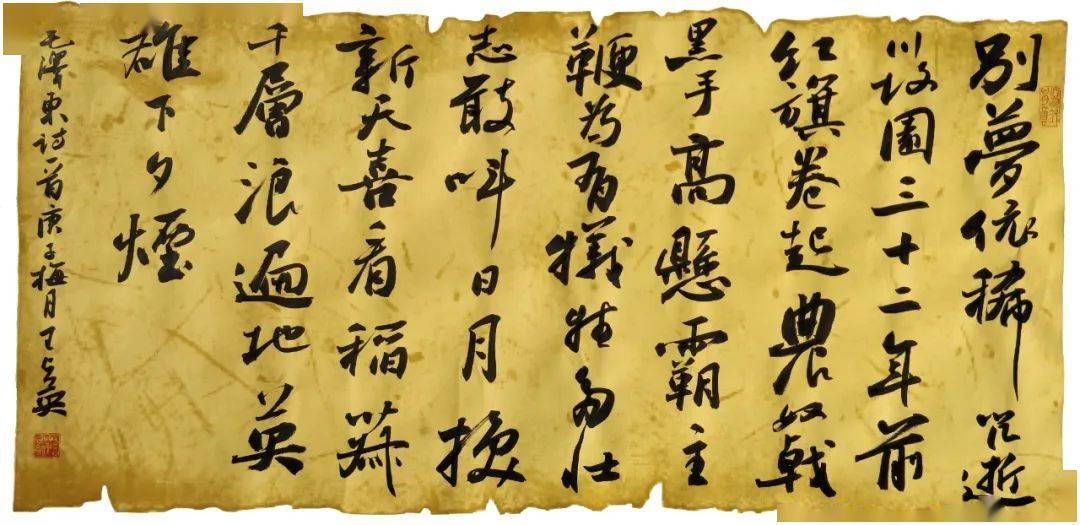 別夢依稀咒逝
川故園三十二年前
红旗卷起農奴戟
黑手高懸霸主
鞭为有犧牲多壮
志敢叫日月换
新天喜看稻菽
千層浪遍地英
雄下夕煙
毛澤東诗一首庚子梅月王英